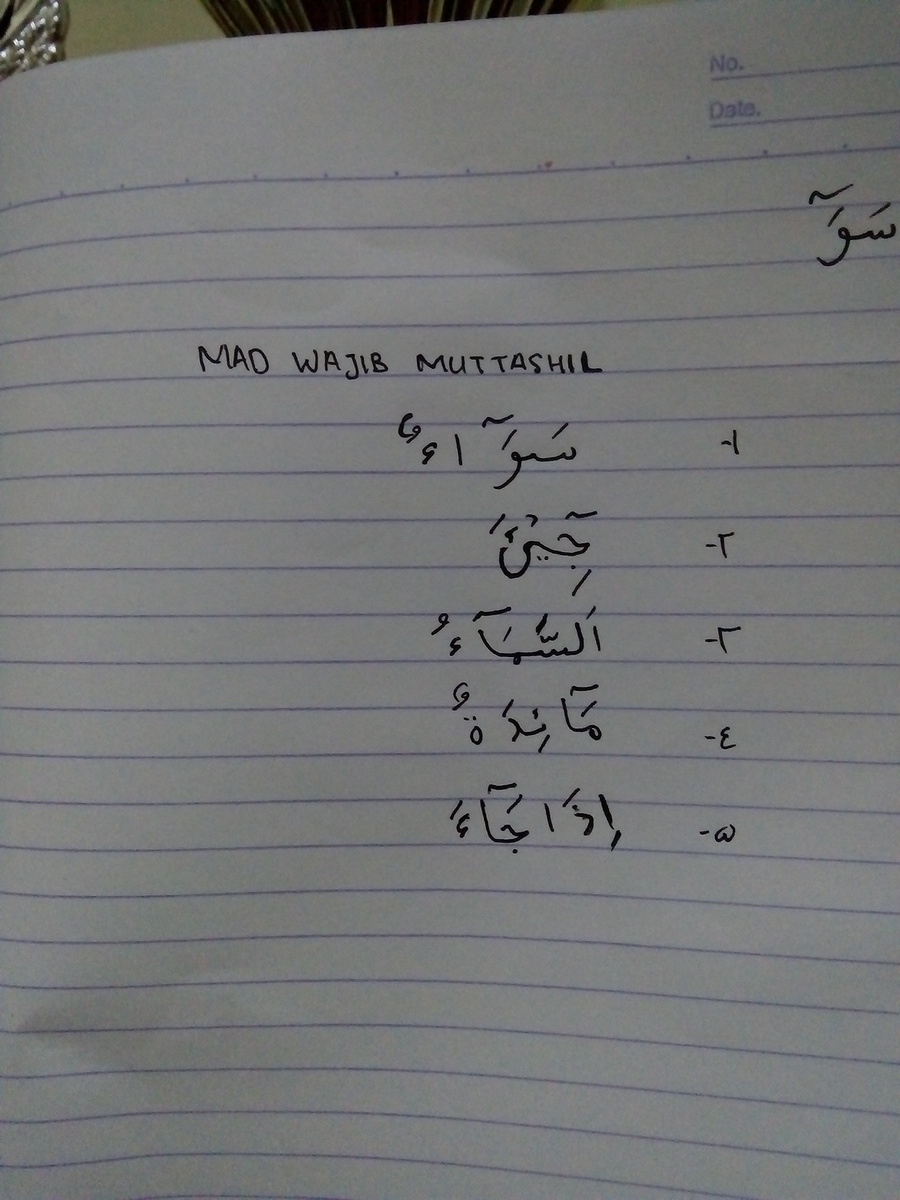 No.
Date.
سَوَآ
MAD WAJIB MUTTASHIL
١- سَوَآ اءٌ
٢- جِيْٓئَ
٣- اَلسَّمَآءُ
٤- مَآئِدَةٌ
٥- إِذَا جَآءَ